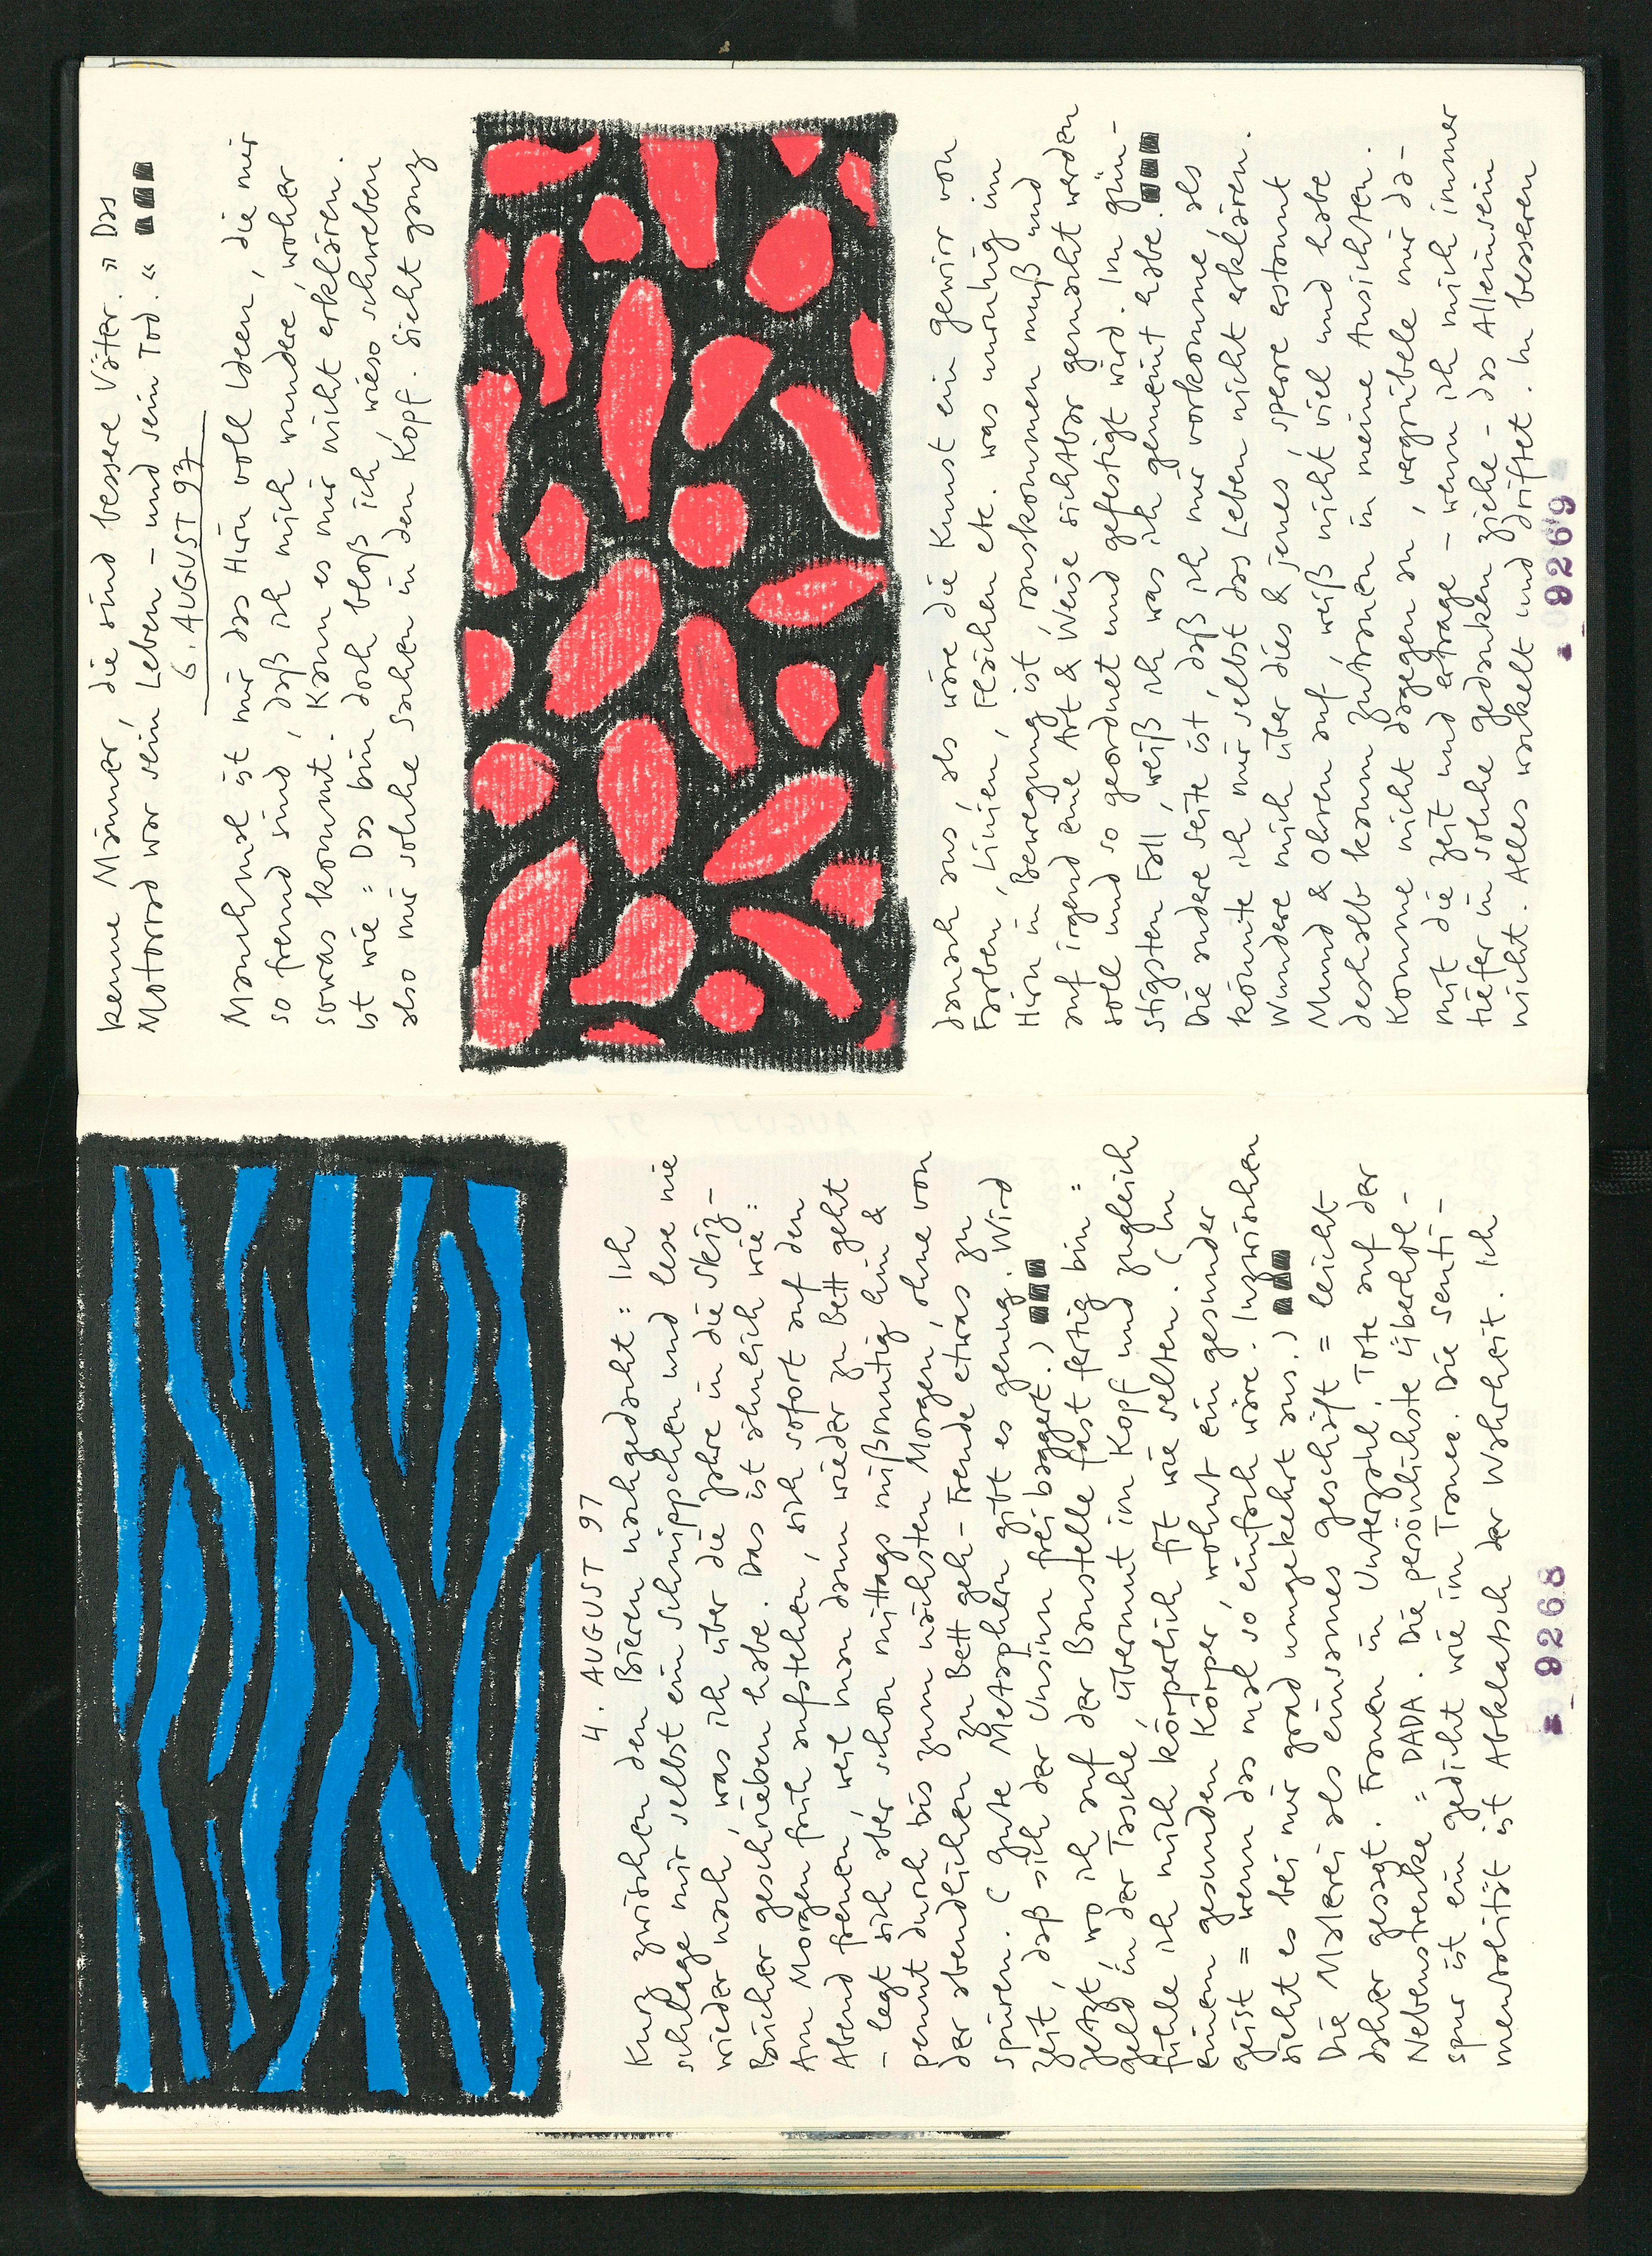 4. AUGUST 97
Kurz zwischen den Bieren nachgedacht: Ich
schlage mir selbst ein Schnippchen und lese nie
wieder nach, was ich über die Jahre in die Skiz-
Bücher geschrieben habe. Das ist ähnlich wie:
Am Morgen früh aufstehen, sich sofort auf den
Abend freuen, weil man dann wieder zu Bett geht
- legt sich aber schon mittags mißmutig hin &
pennt durch bis zum nächsten Morgen, ohne von
der abendlichen zu Bett geh-Freude etwas zu
spüren. (Gute Metaphern gibt es genug. Wird
Zeit, daß sich der Unsinn frei baggert.)
Jetzt, wo ich auf der Baustelle fast fertig bin =
Geld in der Tasche, Übermut im Kopf und zugleich
fühle ich mich körperlich fit wie selten. (In
einem gesunden Körper, wohnt ein gesunder
Geist = wenn das mal so einfach wäre. Inzwischen
sieht es bei mir grad umgekehrt aus.)
Die Malerei als einsames Geschäft = leicht
daher gesagt. Frauen in Unterzahl, Tote auf der
Nebenstrecke = DADA. Die persönlichste Überhol-
spur ist ein Gedicht wie im Trance. Die Senti-
mentalität ist Abklatsch der Wahrheit. Ich
9268
kenne Männer, die sind bessere Väter. » Das
Motorrad war sein Leben - und sein Tod. «
6. AUGUST 97
Manchmal ist mir das Hirn voll Ideen, die mir
so fremd sind, daß ich mich wundere, woher
sowas kommt. Kann es mir nicht erklären.
Ist wie: Das bin doch bloß ich, wieso schweben
also mir solche Sachen in den Kopf. Sieht ganz
danach aus, als wäre die Kunst ein Gewirr von
Farben, Linien, Flächen etc. was unruhig im
Hirn in Bewegung ist, rauskommen muß und
auf irgend eine Art & Weise sichtbar gemacht werden
soll und so geordnet und gefestigt wird. Im gün-
stigsten Fall, weiß ich was ich gemeint habe.
Die andere Seite ist, daß ich mir vorkomme, als
könnte ich mir selbst das Leben nicht erklären.
Wundere mich über dies & jenes, sperre erstaunt
Mund & Ohren auf, weiß nicht viel und habe
deshalb kaum Zutrauen in meine Ansichten.
Komme nicht dagegen an, vergrübele mir da-
mit die Zeit und ertrage - wenn ich mich immer
tiefer in solche Gedanken ziehe - das Alleinsein
nicht. Alles wackelt und driftet. In besseren
9269